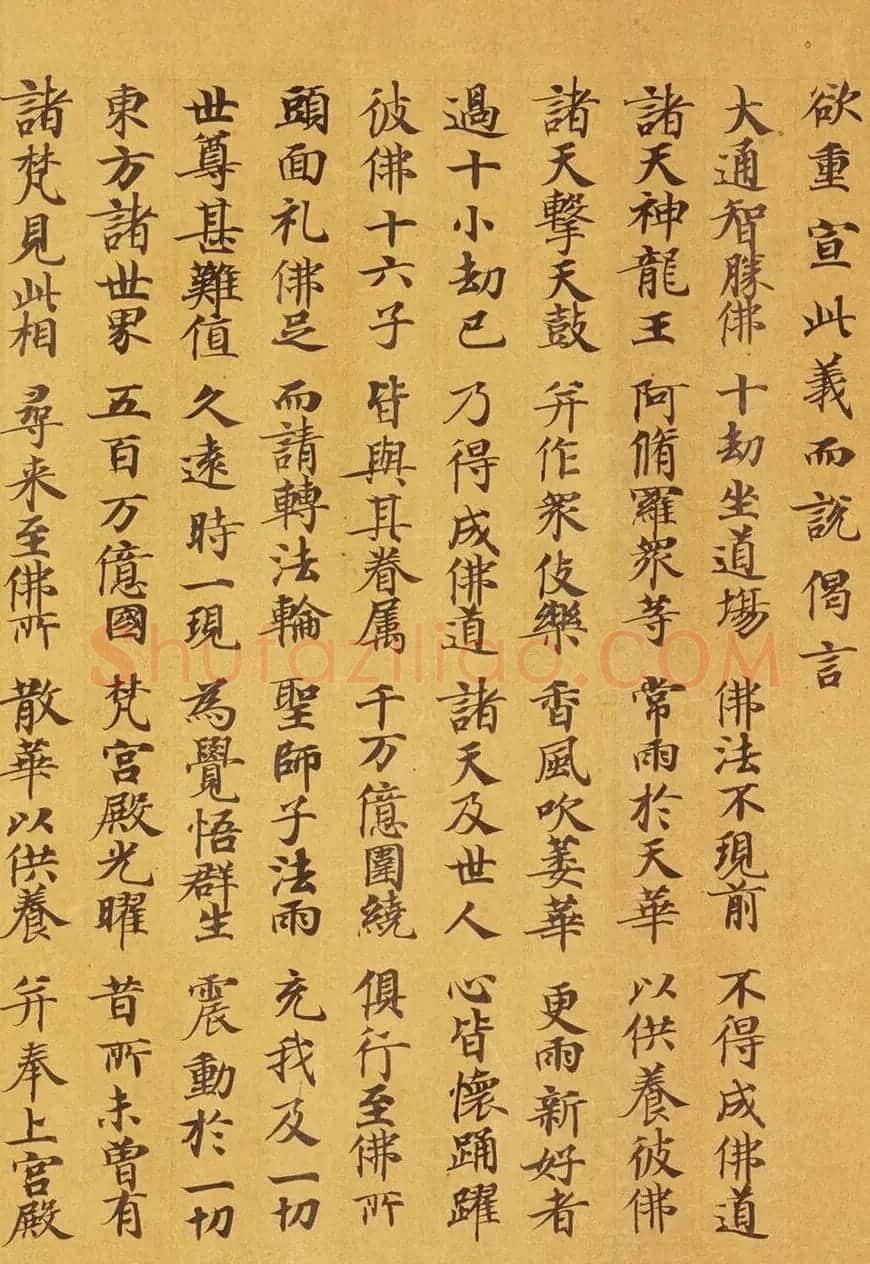 欲重宣此義而說偈言
大通智勝佛 十劫坐道場 佛法不現前 不得成佛道
諸天神龍王 阿脩羅衆等 常雨於天華 以供養彼佛
諸天擊天鼓 并作衆伎樂 香風吹萎華 更雨新好者
過十小劫已 乃得成佛道 諸天及世人 心皆懷踊躍
彼佛十六子 皆與其眷属 千万億圍繞 俱行至佛所
頭面礼佛足 而請轉法輪 聖師子法雨 充我及一切
世尊甚難值 久遠時一現 為覺悟群生 震動於一切
東方諸世界 五百万億國 梵宫殿光曜 昔所未曾有
諸梵見此相 尋来至佛所 散華以供養 并奉上宫殿
Shufaziliao.COM